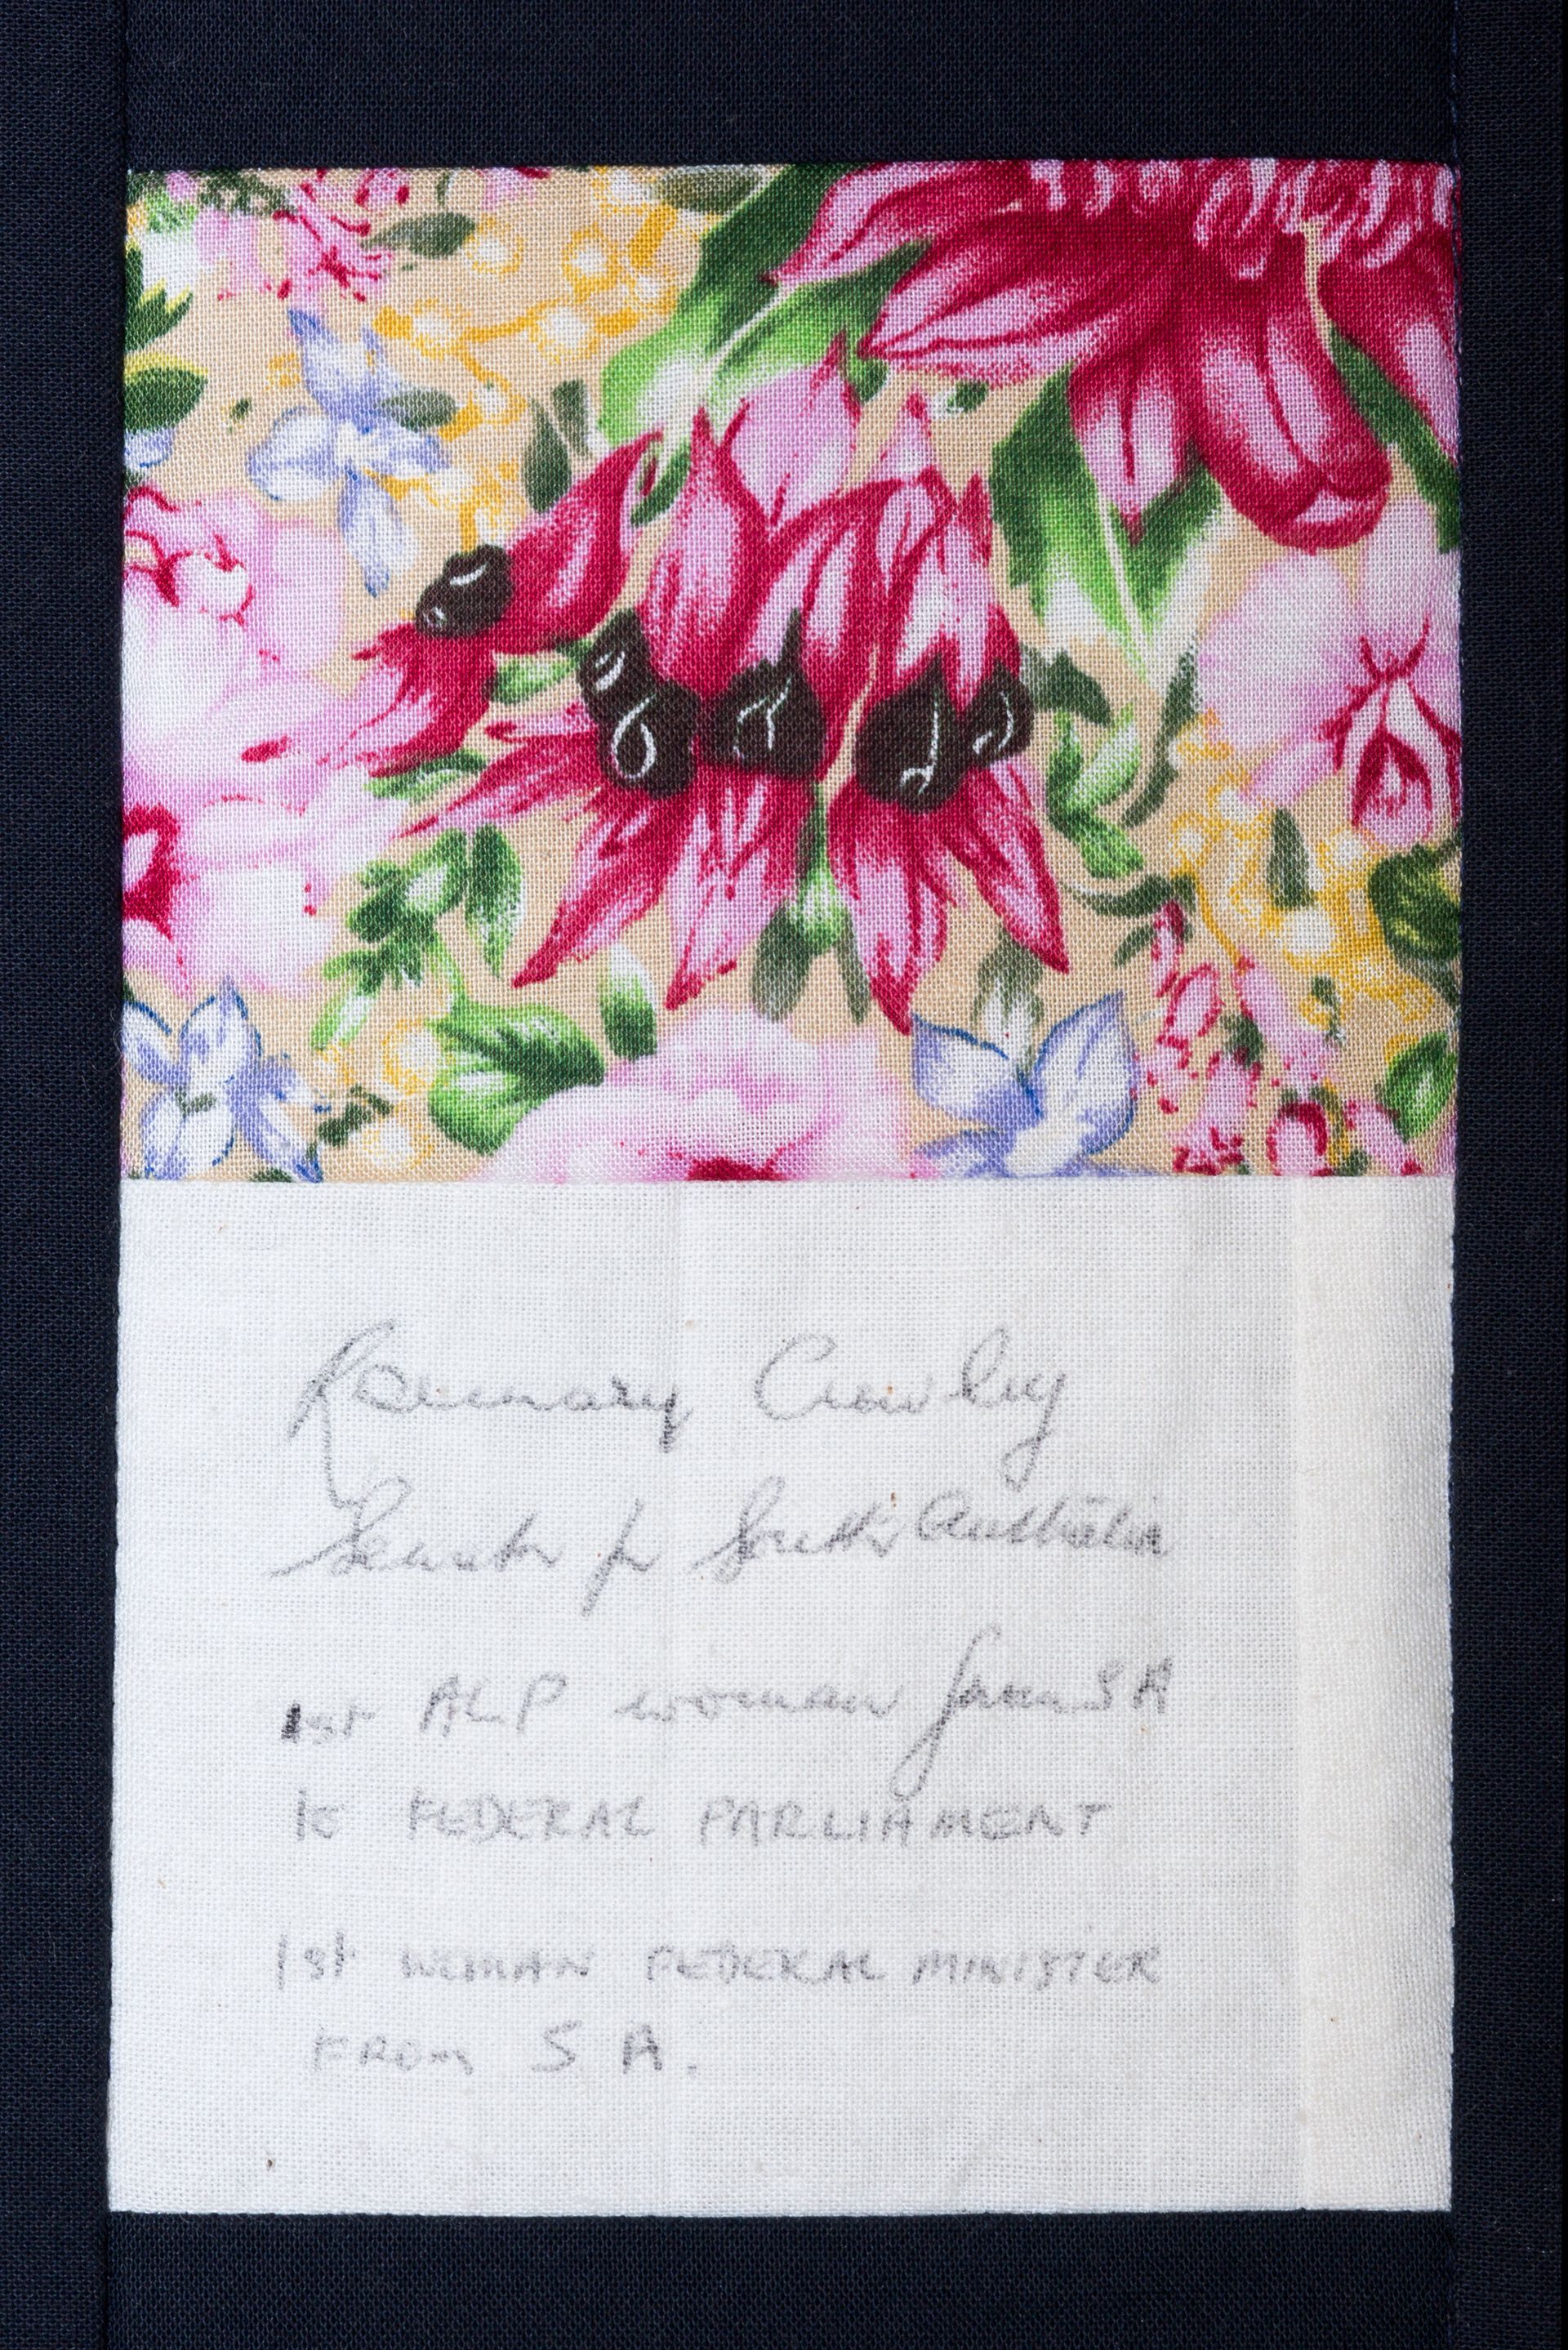 Rosemary Crowley
Senator for South Australia
1st ALP woman from SA
to FEDERAL PARLIAMENT
1st WOMAN FEDERAL MINISTER
FROM S A.